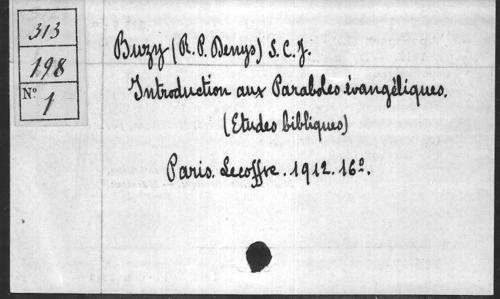 313
198
Nº 1
Buzy (R. P. Denys) S. C. J.
Introduction aux Paraboles évangéliques.
(Etudes bibliques)
Paris. Lecoffre. 1912. 16º.